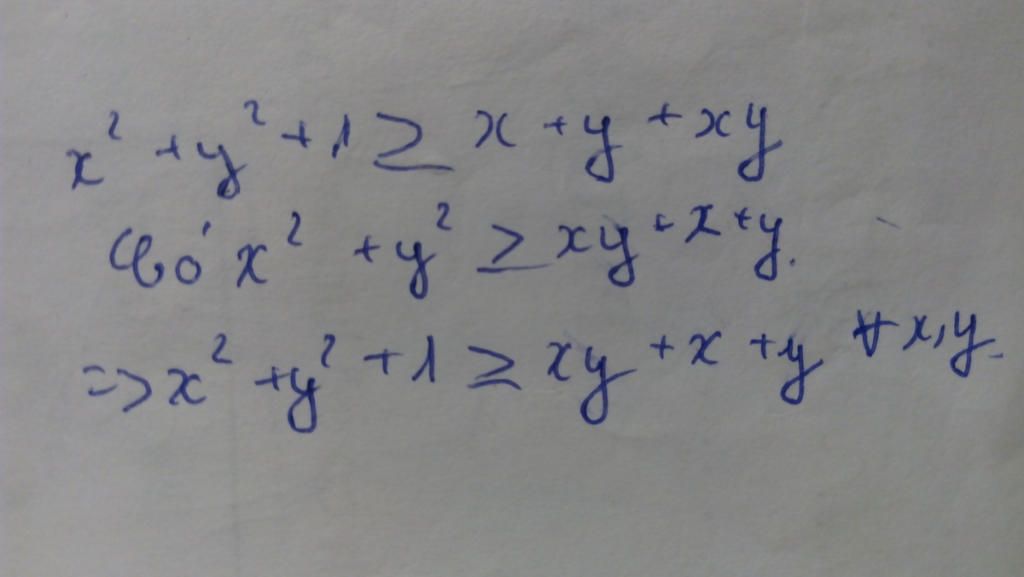 x² + y² + 1 ≥ x + y + xy
Có x² + y² ≥ xy + x + y.
=> x² + y² + 1 ≥ xy + x + y ∀ x, y.